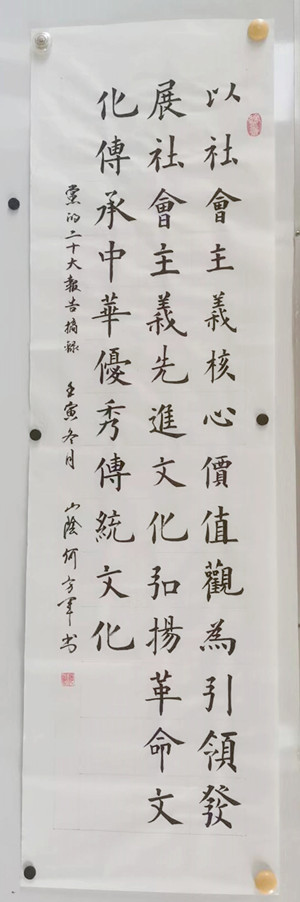 以社會主義核心價值觀為引領發
展社會主義先進文化弘揚革命文
化傳承中華優秀傳統文化
黨的二十大報告摘録 壬寅冬月 山陰何方軍书